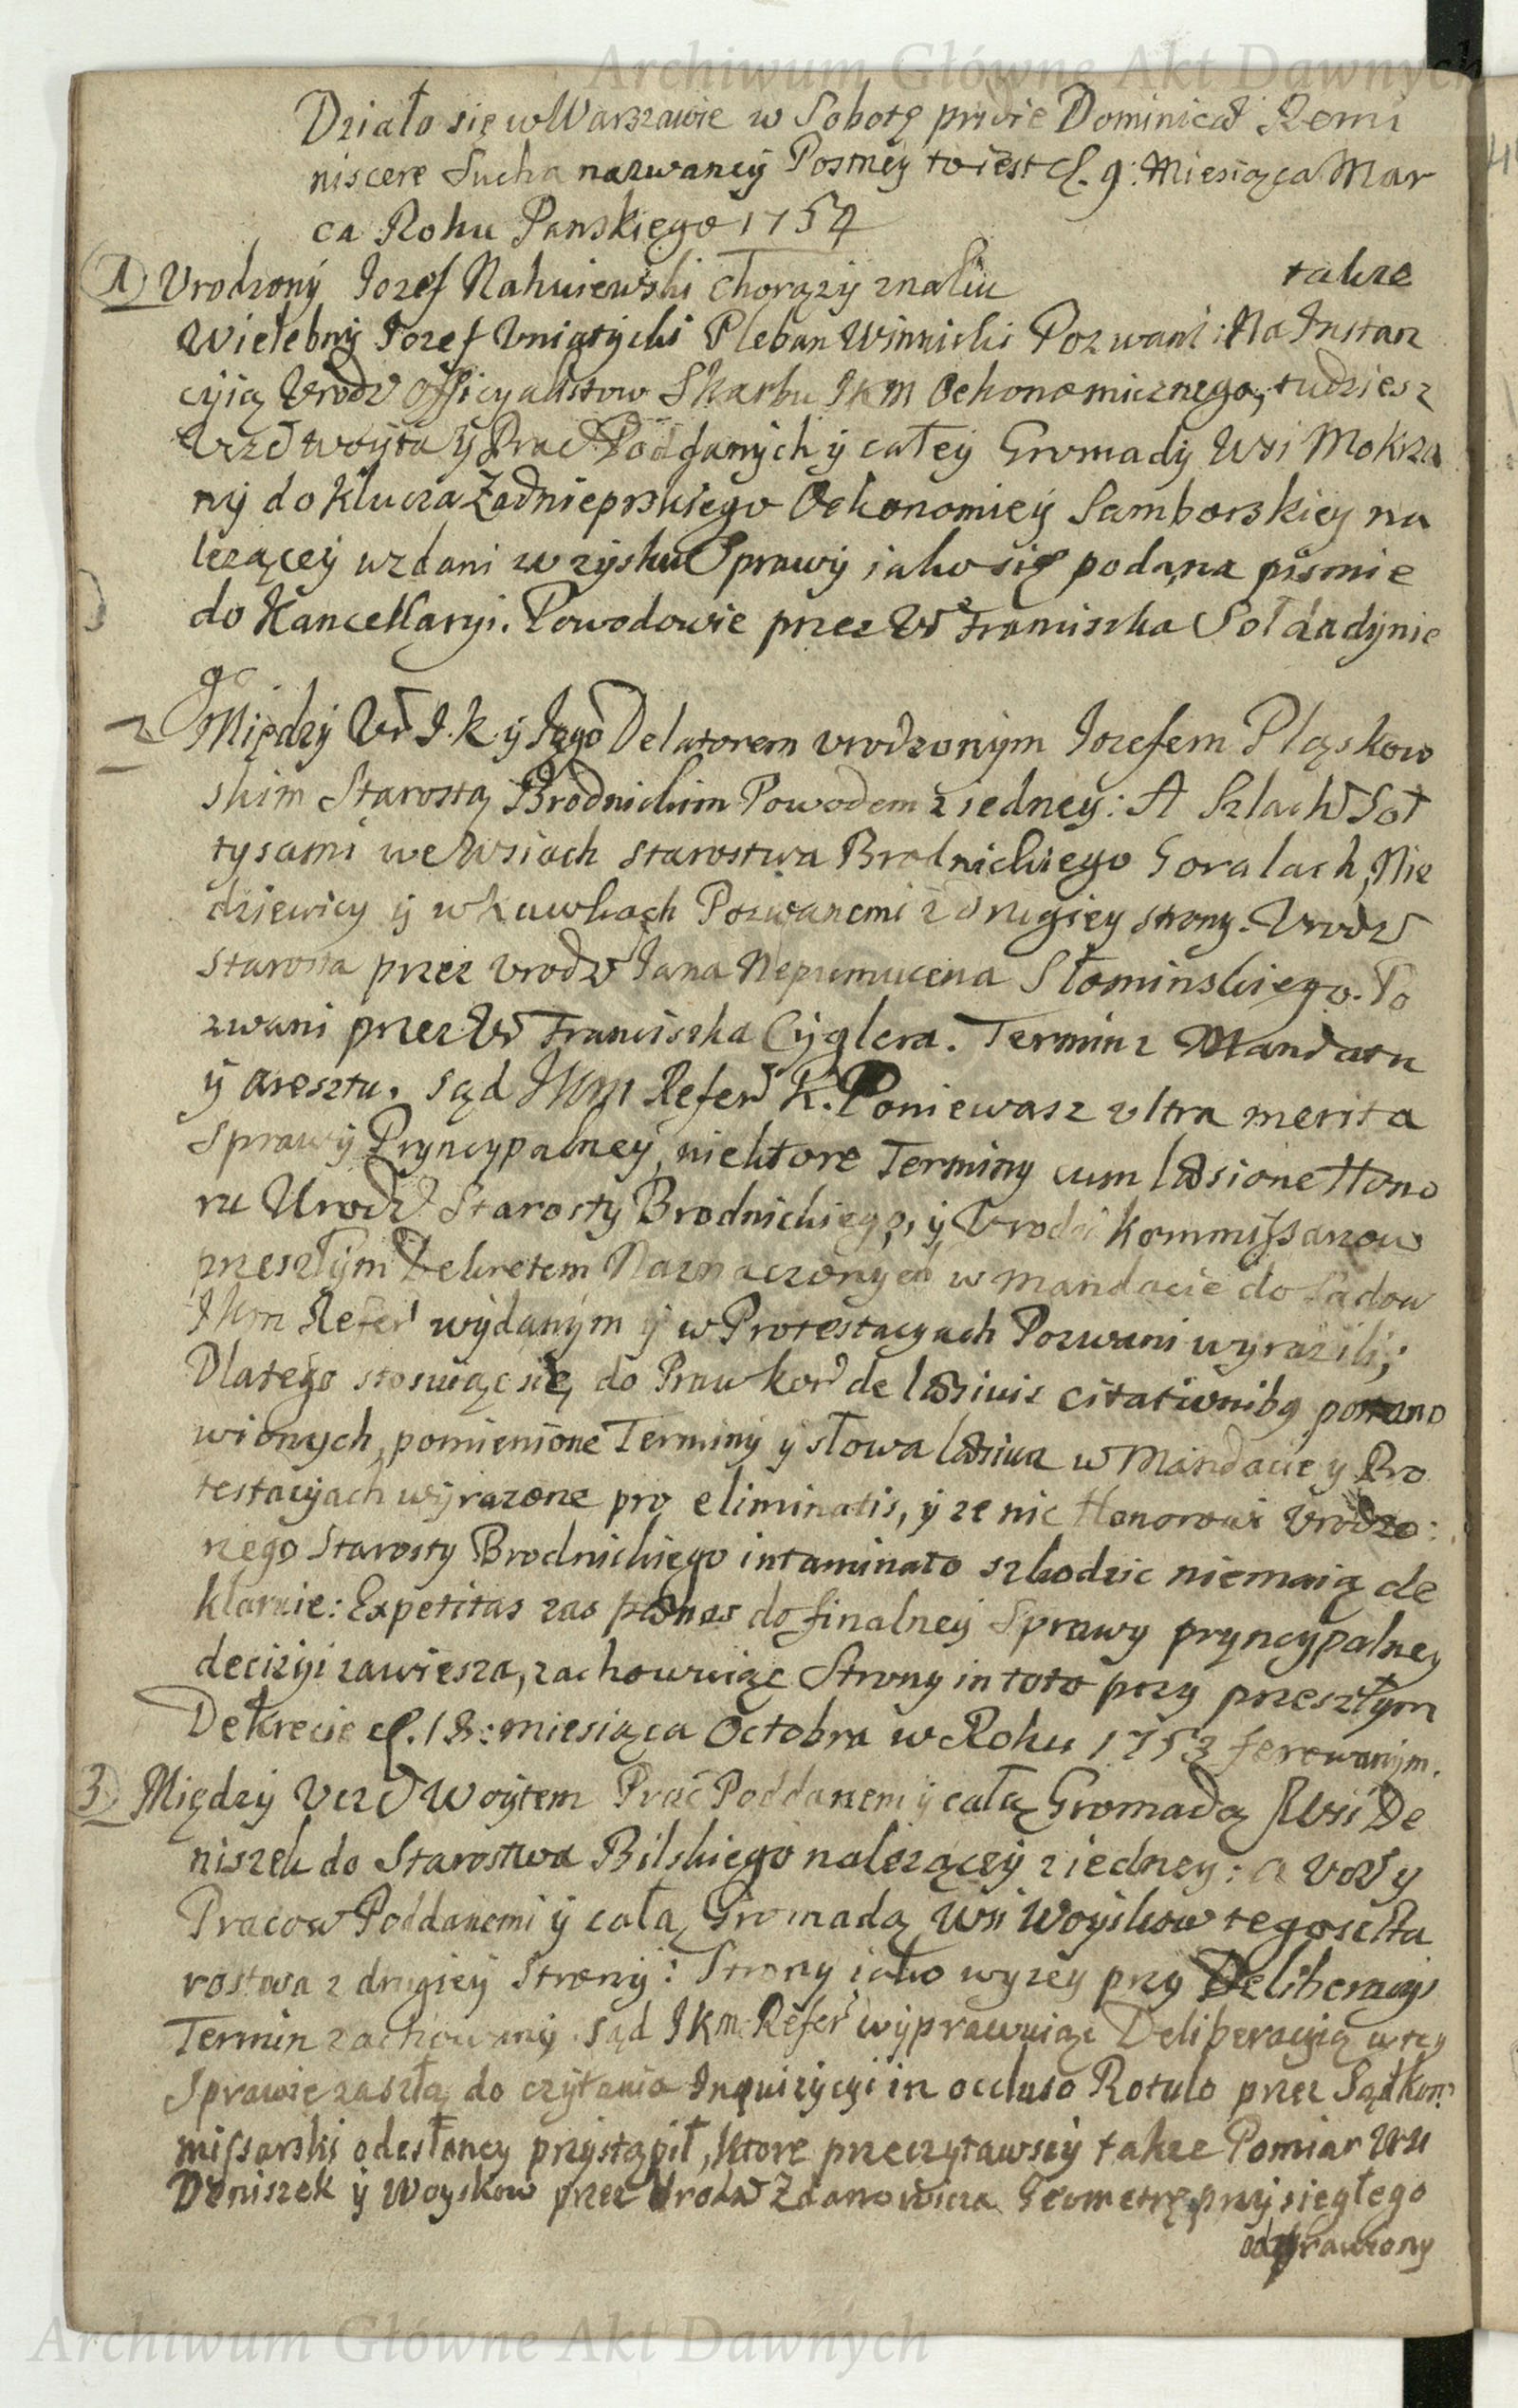 Archiwum Główne Akt Dawnych
Działo się w Warszawie w Sobotę pridie Dominicæ Remi
niscere Sucha nazwaney Postney to iest d. 9: Miesiąca Mar
ca Roku Panskiego 1754
1) Urodzony Jozef Nahuiewski Chorązy
takze
Wielebny Jozef Uniatycki Pleban Winnicki Pozwani: Na Instan
cyią Urodz Officyalistow Skarbu JKM Oekonomicznego, tudziesz
Uczc woyta y Prac Poddanych y całey Gromady Wsi Mokrza
ny do Klucza Zadnieprskiego Oekonomiey Samborskiey na
lezącey wzdani w zysku Sprawy iako się podana pismie
do Kancellaryi. Powodowie przez Ur Franciszka Sołdadynie
go
2 Między Ur I. K. y Jego Delatorem urodzonym Jozefem Pląskow
skim Starostą Brodnickim Powodem z iedney: A Szlach Soł
tysami we Wsiach Starostwa Brodnickiego Goralach, Nie
dziewicy y w Kawkach Pozwanemi z drugiey strony. Urodz
Starosta przez Urodz Jana Nepumucena Słominskiego. Po
zwani przez Ur Franciszka Cyglera. Termin z Mandatu
y aresztu. Sąd JKM Refer K. Poniewasz ultra merita
Sprawy Pryncypalney, niektore Terminy cum læsione Hono
ru Urodz Starosty Brodnickiego, y Urodz Kommissarzow
przeszłym Dekretem Naznaczonych w mandacie do Sadow
JKM Refer wydanym y w Protestacyach Pozwani wyrazili;
Dlatego stosuiąc się do Praw Kor de læsivis citationibq postano
wionych, pomienione Terminy y słowa læsiva w Mandacie y Pro
testacyach wyrazone pro eliminatis, y ze nic Honorowi Urodzo:
nego Starosty Brodnickiego intaminato szkodzic niemaią de
klaruie: Expetitas zas pænas do finalney Sprawy pryncypalney
decizyi zawiesza, zachowuiąc Strony in toto przy przeszłym
Dekrecie d. 18: miesiąca Octobra w Roku 1753 ferowanym.
3) Między Uczc Woytem Prac Poddanemi y całą Gromadą Wsi De
niszek do Starostwa Bilskiego nalezącey z iedney: a
Pracow Poddanemi y całą Gromadą Wsi Woyskow tegosz Sta
rostwa z drugiey Strony: Strony iako wyzey przy Deliberacyi
Termin zachowany. Sąd JKM Refer wyprawuiąc Deliberacyią w tey
Sprawie zaszłą do czytania Inquizycyi in occluso Rotulo przez Sąd Kom
missarski odesłaney przystąpił, ktore przeczytawszy takze Pomiar Wsi
Deniszek y Woyskow przez Urodz Zdanowicza Geometrę przysięgłego
odprawiony
Archiwum Główne Akt Dawnych